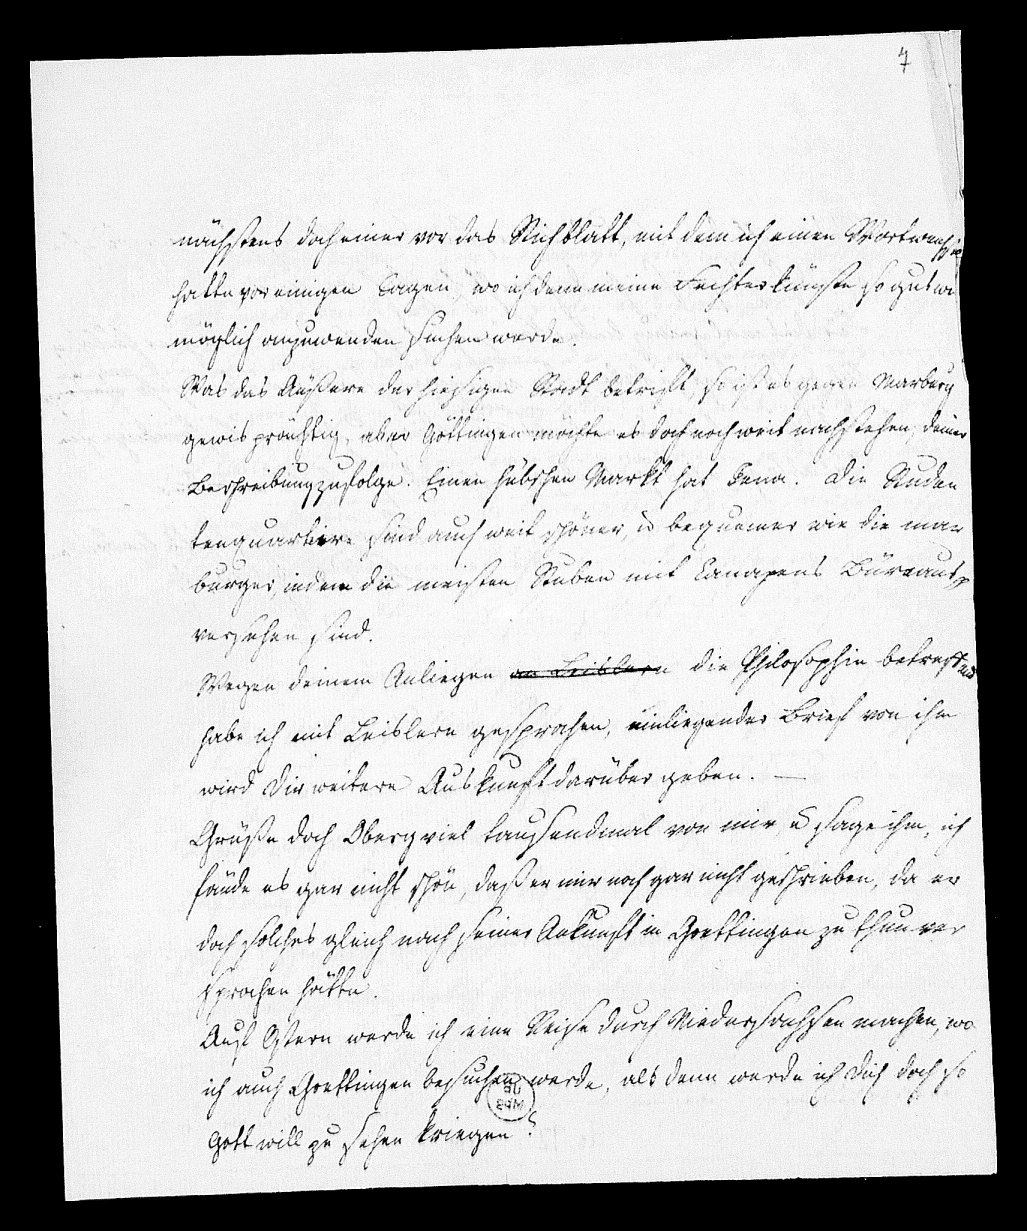 7
nächstens doch einer vor das Stichblatt, mit dem ich einen Wortwechsel
hatte vor einigen Tagen, wo ich denn meine Fechterkünste so gut wie
möglich anzuwenden suchen werde
Was das Äußere der hiesigen Stadt betrift, so ist es gegen Marburg
gewis prächtig, aber Göttingen möchte es doch noch weit nachstehen, deiner
Beschreibung zufolge. Einen hübschen Markt hat Jena. Die Studen
tenquartiere sind auch weit schöner, u bequemer wie die mar
burger, indem die meisten Stuben mit Canapens Büreaus
versehen sind.
Wegen deinem Anliegen an Leislern die Philosophie betreffend
habe ich mit Leislern gesprochen, einliegender Brief von ihm
wird dir weitere Auskunft darüber geben. —
Grüße doch Oberg viel tausendmal von mir, u sage ihm, ich
fände es gar nicht schön, daß er mir noch gar nicht geschrieben, da er
doch solches gleich nach seiner Ankunft in Goettingen zu thun ver
sprochen hätte.
Auf Ostern werde ich eine Reise durch Niedersachsen machen, wo
ich auch Goettingen besuchen werde, als denn werde ich dich doch so
Gott will zu sehen kriegen?